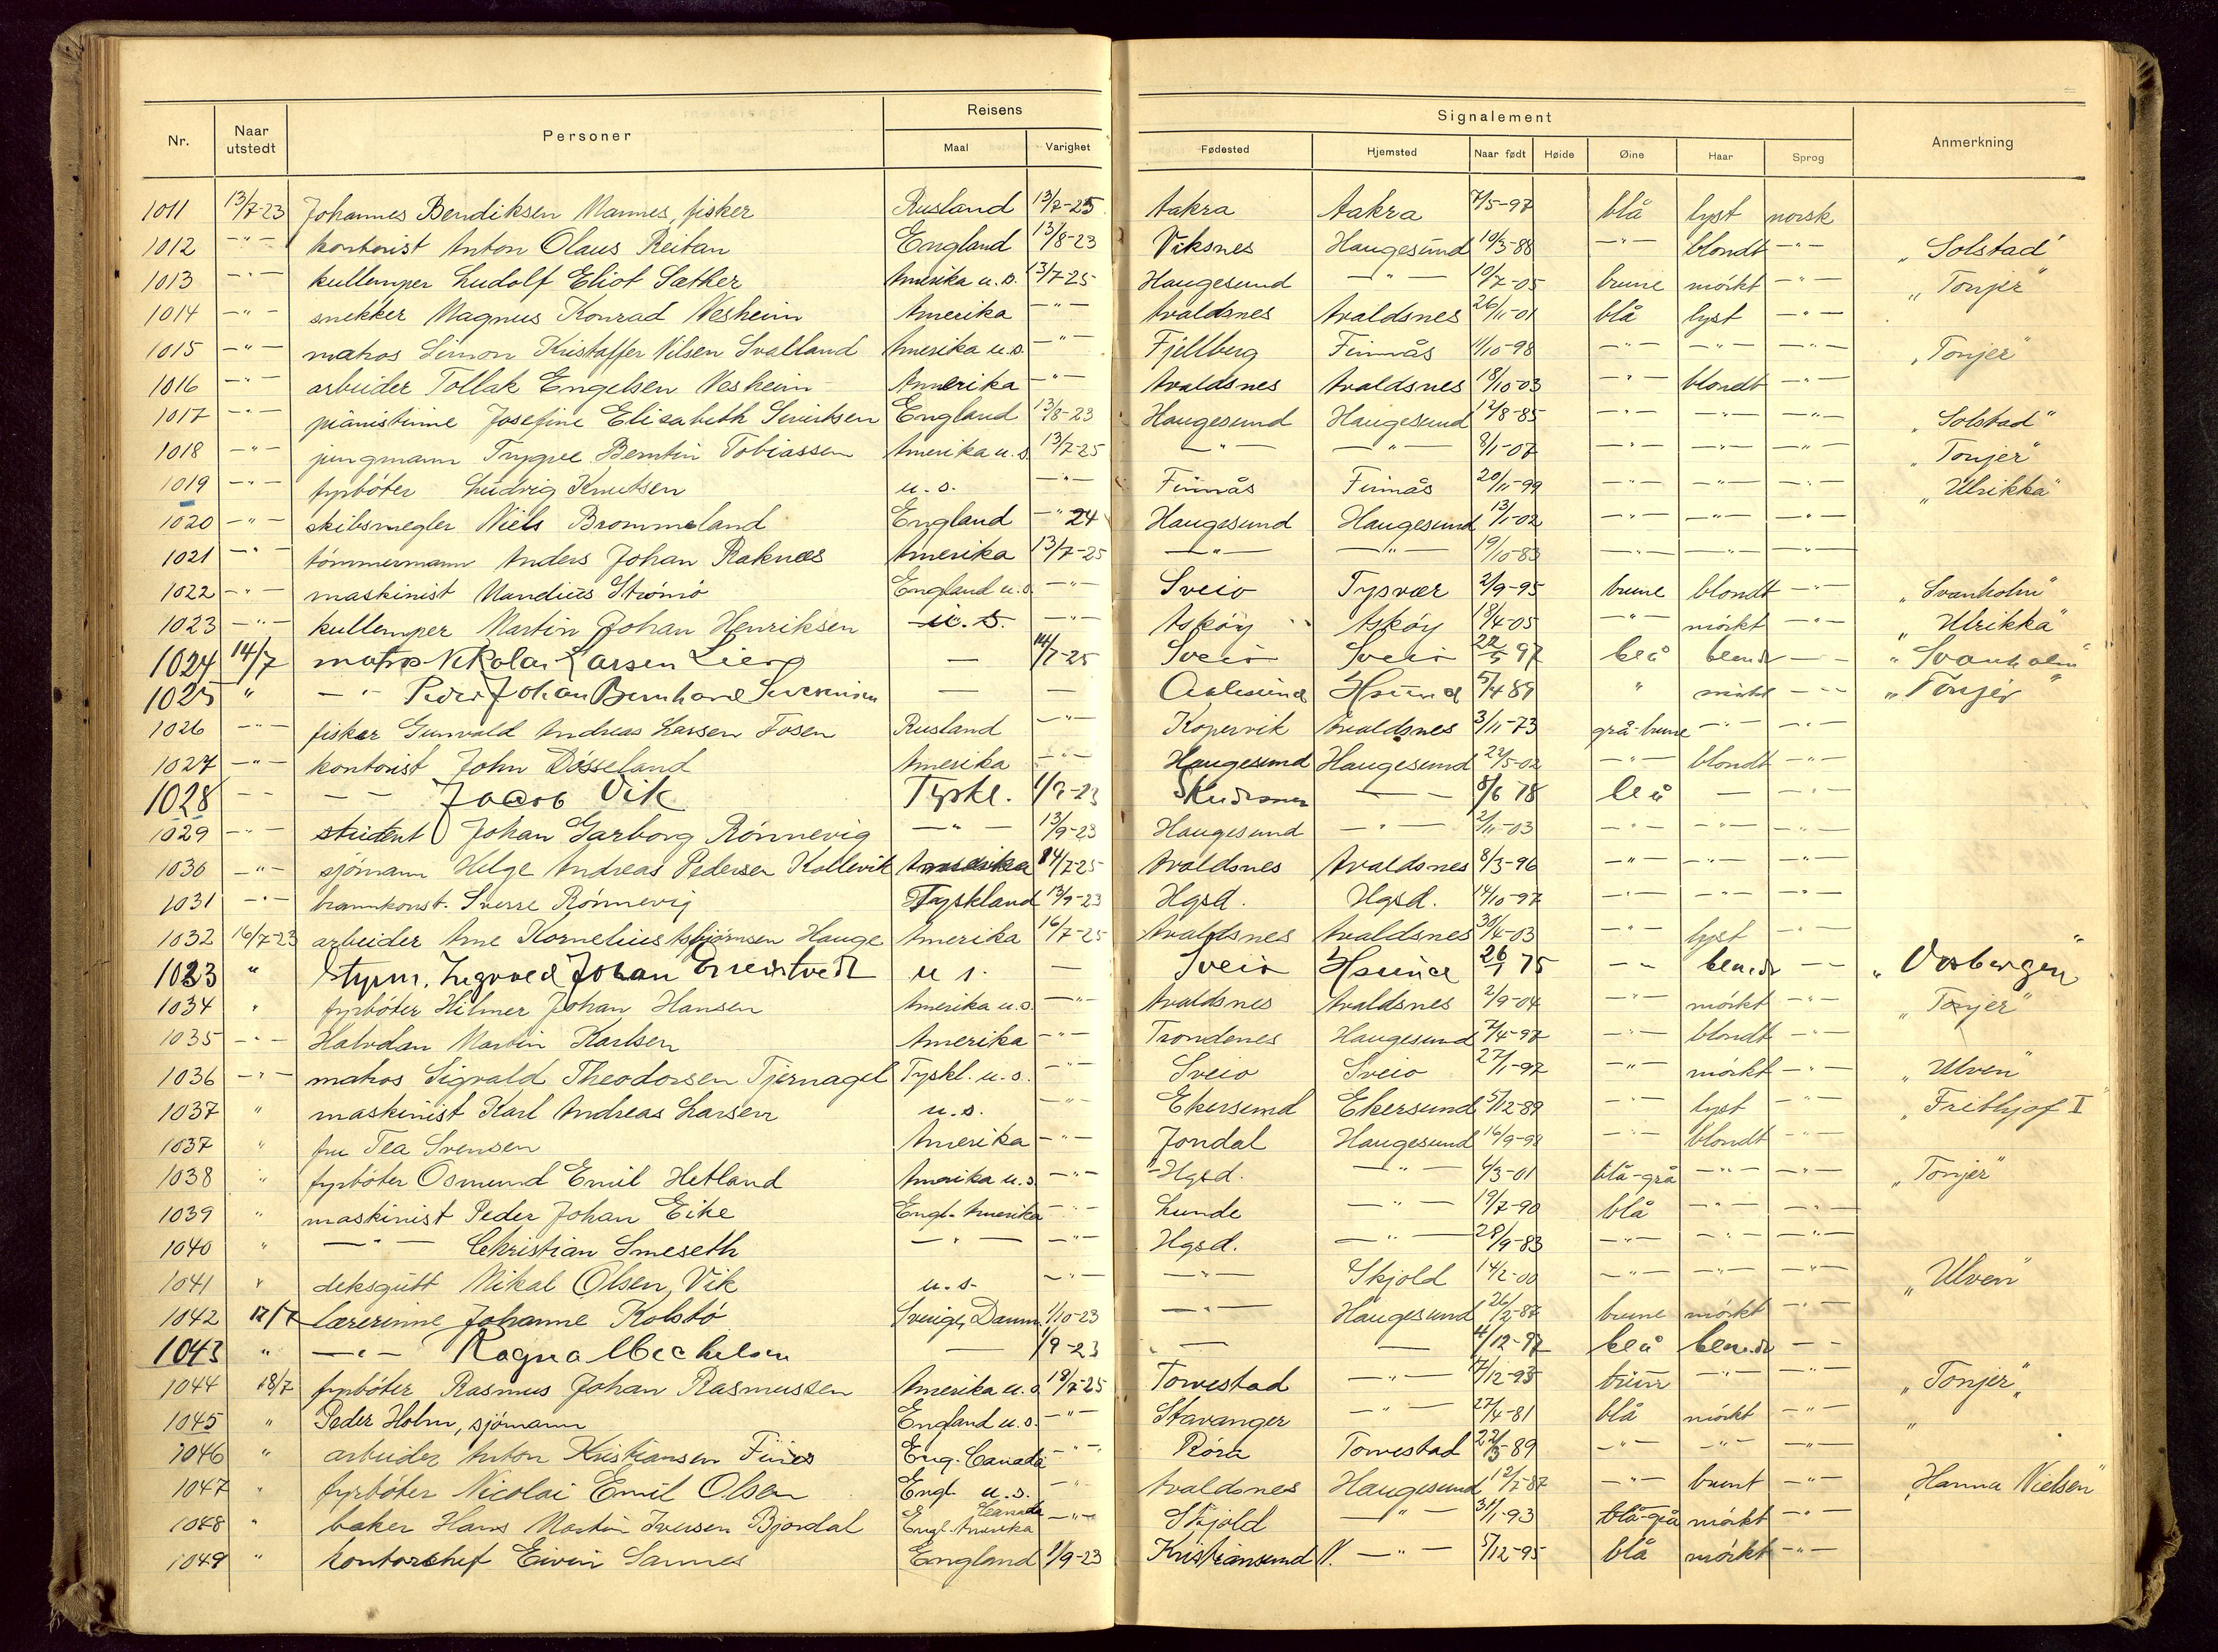 Nr. Naar utstedt Personer Reisens Maal Varighet Signalement Fødested Hjemsted Naar født Høide Øine Haar Sprog Anmerkning
1011 13/7-23 Johannes Bendiksen Mannes, fisker Rusland 13/7-25 Aakra Aakra 7/5-97 blå lyst norsk
1012 -"- kontorist Anton Olaus Reitan England 13/8-23 Viksnes Haugesund 10/3-88 -"- blondt -"- „Solstad"
1013 -"- kullemper Ludolf Eliot Sæther Amerika u.s. 13/7-25 Haugesund -"- 10/7-05 brune mörkt -"- „Tonjer"
1014 -"- snekker Magnus Konrad Vesheim Amerika -"- Avaldsnes Avaldsnes 26/11-01 blå lyst -"-
1015 -"- matros Simon Kristoffer Nilsen Svalland Amerika u.s. -"- Fjellberg Finnås 11/10-98 -"- -"- -"- „Tonjer"
1016 -"- arbeider Tollak Engelsen Vesheim Amerika -"- Avaldsnes Avaldsnes 18/10-03 -"- blondt -"-
1017 -"- pianistinne Josefine Elisabeth Sivertsen England 13/8-23 Haugesund Haugesund 12/8-85 -"- -"- -"- „Solstad"
1018 -"- jungmann Trygve Berntin Tobiassen Amerika u.s. 13/7-25 -"- -"- 8/1-07 -"- -"- -"- „Tonjer"
1019 -"- fyrböter Ludvig Knutsen u.s. -"- Finnås Finnås 20/11-99 -"- -"- -"- „Ulrikka"
1020 -"- skibsmegler Niels Brommeland England -"- 24 Haugesund Haugesund 13/1-02 -"- -"- -"-
1021 -"- tömmermann Anders Johan Raknæs Amerika 13/7-25 -"- -"- 19/10-83 -"- -"- -"-
1022 -"- maskinist Mandius Strömö England u.s. -"- Sveio Tysvær 2/9-95 brune blondt -"- „Svanholm"
1023 -"- kullemper Martin Johan Henriksen u.s. -"- Asköy Asköy 18/4-05 -"- mörkt -"- „Ulrikka"
1024 14/7 matros Nikolai Larsen Lier — 14/7-25 Sveio Sveio 97 blå blondt -- „Svanholm"
1025 " -"- Peder Johan Bernhard Severinsen — — Aalesund Hsund 5/4 89 " mörkt -"- „Tonjer"
1026 -"- fisker Gunvald Andreas Larsen Fosen Rusland -"- Kopervik Avaldsnes 3/11-73 grå-brune -"- -"-
1027 -"- kontorist John Dösseland Amerika -"- Haugesund Haugesund 22/5-02 -"- blondt -"-
1028 -- -- Jacob Vik Tyskl. 1/9-23 Skudesnes — 8/6 78 blå — -"-
1029 -"- student Johan Garborg Rönnevig -"- 13/9-23 Haugesund -"- 2/11-03 -"- -"- -"-
1030 -"- sjömann Helge Andreas Pedersen Kollevik Amerika 14/7-25 Avaldsnes Avaldsnes 8/3-96 -"- -"- -"-
1031 -"- brannkonst. Sverre Rönnevig Tyskland 13/9-23 Hgsd. Hgsd. 14/10-97 -"- -"- -"-
1032 16/7-23 arbeider Arne Kornelius Asbjörnsen Hauge Amerika 16/7-25 Avaldsnes Avaldsnes 30/4-03 -"- lyst -"-
1033 " styrm. Ingvald Johan u s. — Sveio Hsund 26/1 75 -- blondt -- „Vosbergen"
1034 " fyrböter Hilmer Johan Hansen Amerika u.s. -"- Avaldsnes Avaldsnes 2/9-04 -"- mörkt -"- „Tonjer"
1035 -"- Halvdan Martin Karlsen Amerika -"- Trondenes Haugesund 7/4-97 -"- blondt -"-
1036 -"- matros Sigvald Theodorsen Tjernagel Tyskl. u.s. -"- Sveio Sveio 27/1-97 -"- mörkt -"- „Ulven"
1037 " maskinist Karl Andreas Larsen u.s. -"- Ekersund Ekersund 5/12-89 -"- lyst -"- „Frithjof I"
1037 " fru Tea Svensen Amerika -"- Jondal Haugesund 16/9-98 -"- blondt -"-
1038 " fyrböter Osmund Emil Hetland Amerika u.s. -"- Hgsd. -"- 6/3-01 blå-grå -"- -"- „Tonjer"
1039 " maskinist Peder Johan Eike Engl.-Amerika -"- Lunde -"- 19/7-90 blå -"- -"-
1040 " -"- Christian Smeseth -"- -"- Hgsd. -"- 28/9-83 -"- -"- -"-
1041 " deksgutt Mikal Olsen, Vik u.s. -"- -"- Skjold 14/2-00 -"- -"- -"- „Ulven"
1042 17/7 lærerinne Johanne Kolstö Sverige, Danm. 1/10-23 -"- Haugesund 26/2-87 brune mörkt -"-
1043 " -"- Ragna Michelsen — 1/9-23 — — 4/12-97 blå blondt --
1044 18/7 fyrböter Rasmus Johan Rasmussen Amerika u.s. 18/7-25 Torvestad -"- 7/12-93 brune -"- -"- „Tonjer"
1045 " Peder Holm, sjömann England u.s. -"- Stavanger -"- 27/4-81 blå mörkt -"- „
1046 " arbeider Anton Kristiansen Eng.-Canada -"- Röra Torvestad 22/5-89 -"- -"- -"-
1047 " fyrböter Nicolai Emil Olsen Engl. u.s. -"- Avaldsnes Haugesund 12/7-87 -"- brunt -"- „Hanna Nielsen"
1048 " baker Hans Martin Iversen Bjordal Engl. Amerika Canada -"- Skjold -"- 31/1-93 blå-grå mörkt -"-
1049 " kontorchef Eivin Sannes England 1/9-23 Kristiansund N. -"- 5/12-95 blå mörkt -"-